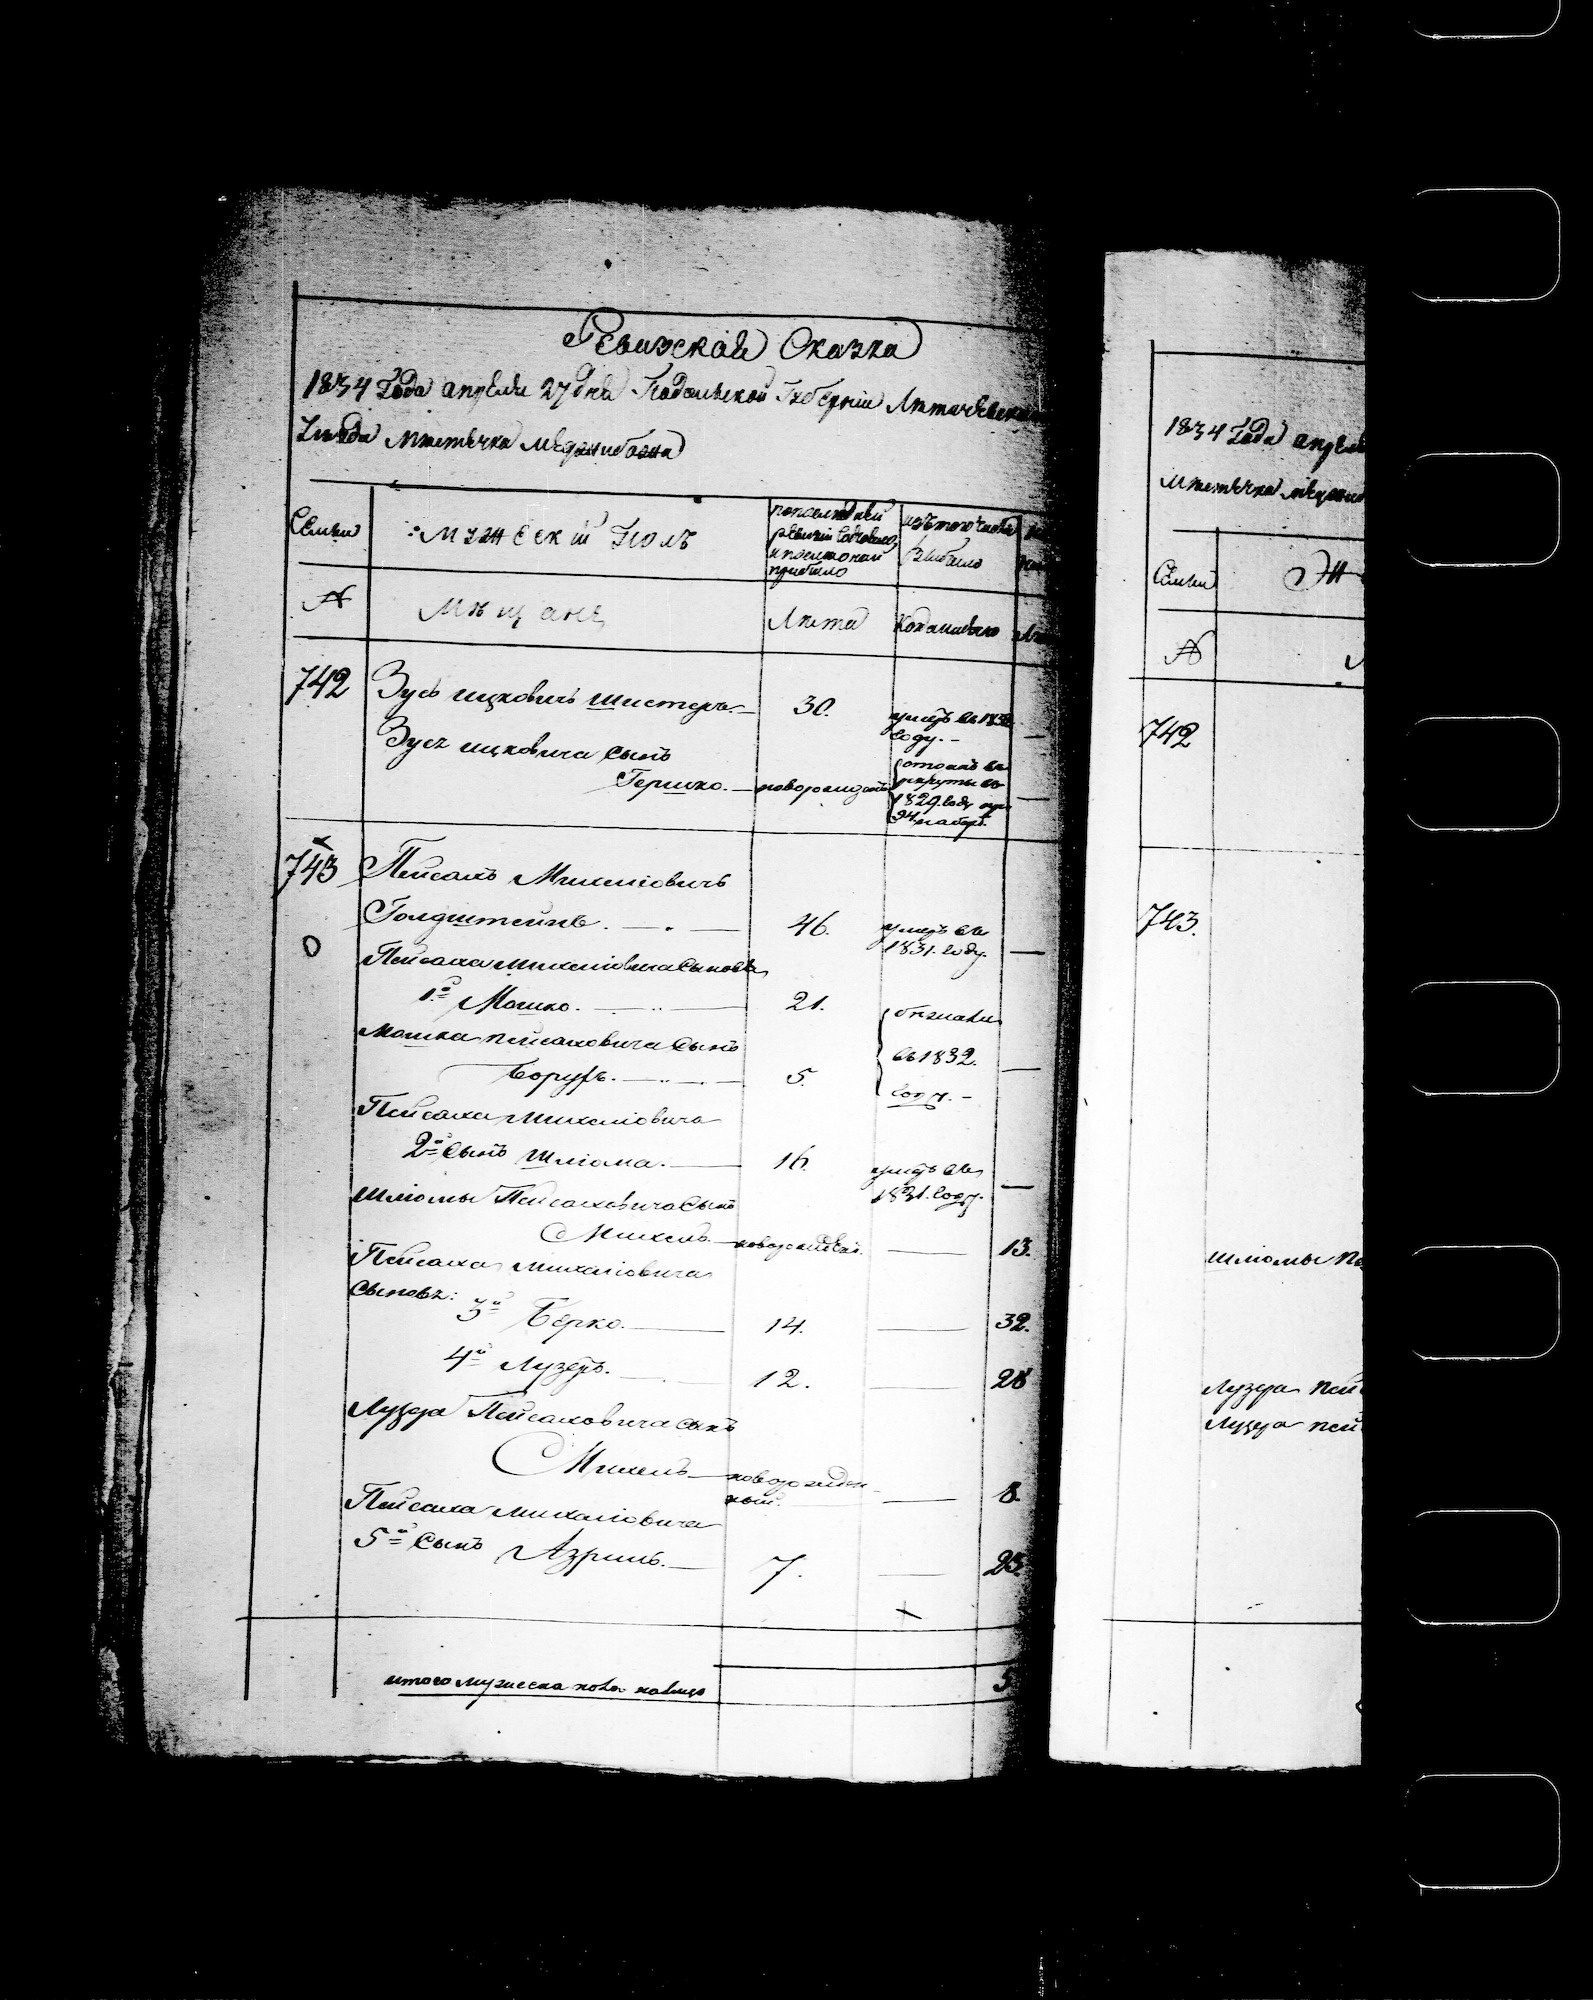 Ревизская Сказка
1834 Года апреля 27 дня Подольской Губернии Литичевского
Уезда Мѣстечка Меджибожа
Семьи
Мужеский Полъ
по последней ревизии состояло и после оной прибыло
изъ того числа выбыло
№
Мѣщане
Лѣта
Когда именно
742 Зусь Ицковичъ Шистеръ. 30. умеръ въ 1830
году. —
Зуся Ицковича сынъ
Гершко. — новорожденъ
отданъ въ
рекруты въ
1829. году при
94. наборѣ.
743 Пейсахъ Михелiовичъ
Голдштейнъ. — 46. умеръ въ
1831. году. —
Пейсаха Михелiовича сыновья
1й Мошко. — 21. бежали
Мошка Пейсаховича сынъ
въ 1832. —
Борухъ. — 5.
году. —
Пейсаха Михелiовича
2й сынъ Шлiома. — 16. умеръ въ
1831. году. —
Шлiомы Пейсаховича сынъ
Михель — новорожден. — 13.
Пейсаха Михелiовича
сыновья: 3й Берко. — 14. — 32.
4й Лузеръ. — 12. — 28
Лузера Пейсаховича сынъ
Михель — новорожден-
ный. — 8.
Пейсаха Михелiовича
5й сынъ Азриль. — 7. — 25.
итого мужеска пола налицо 5
1834 Года апреля
Мѣстечка Меджи
Семьи
Ж
№
742
743.
Шлiомы Пе
Лузера Пей
Лузера Пей